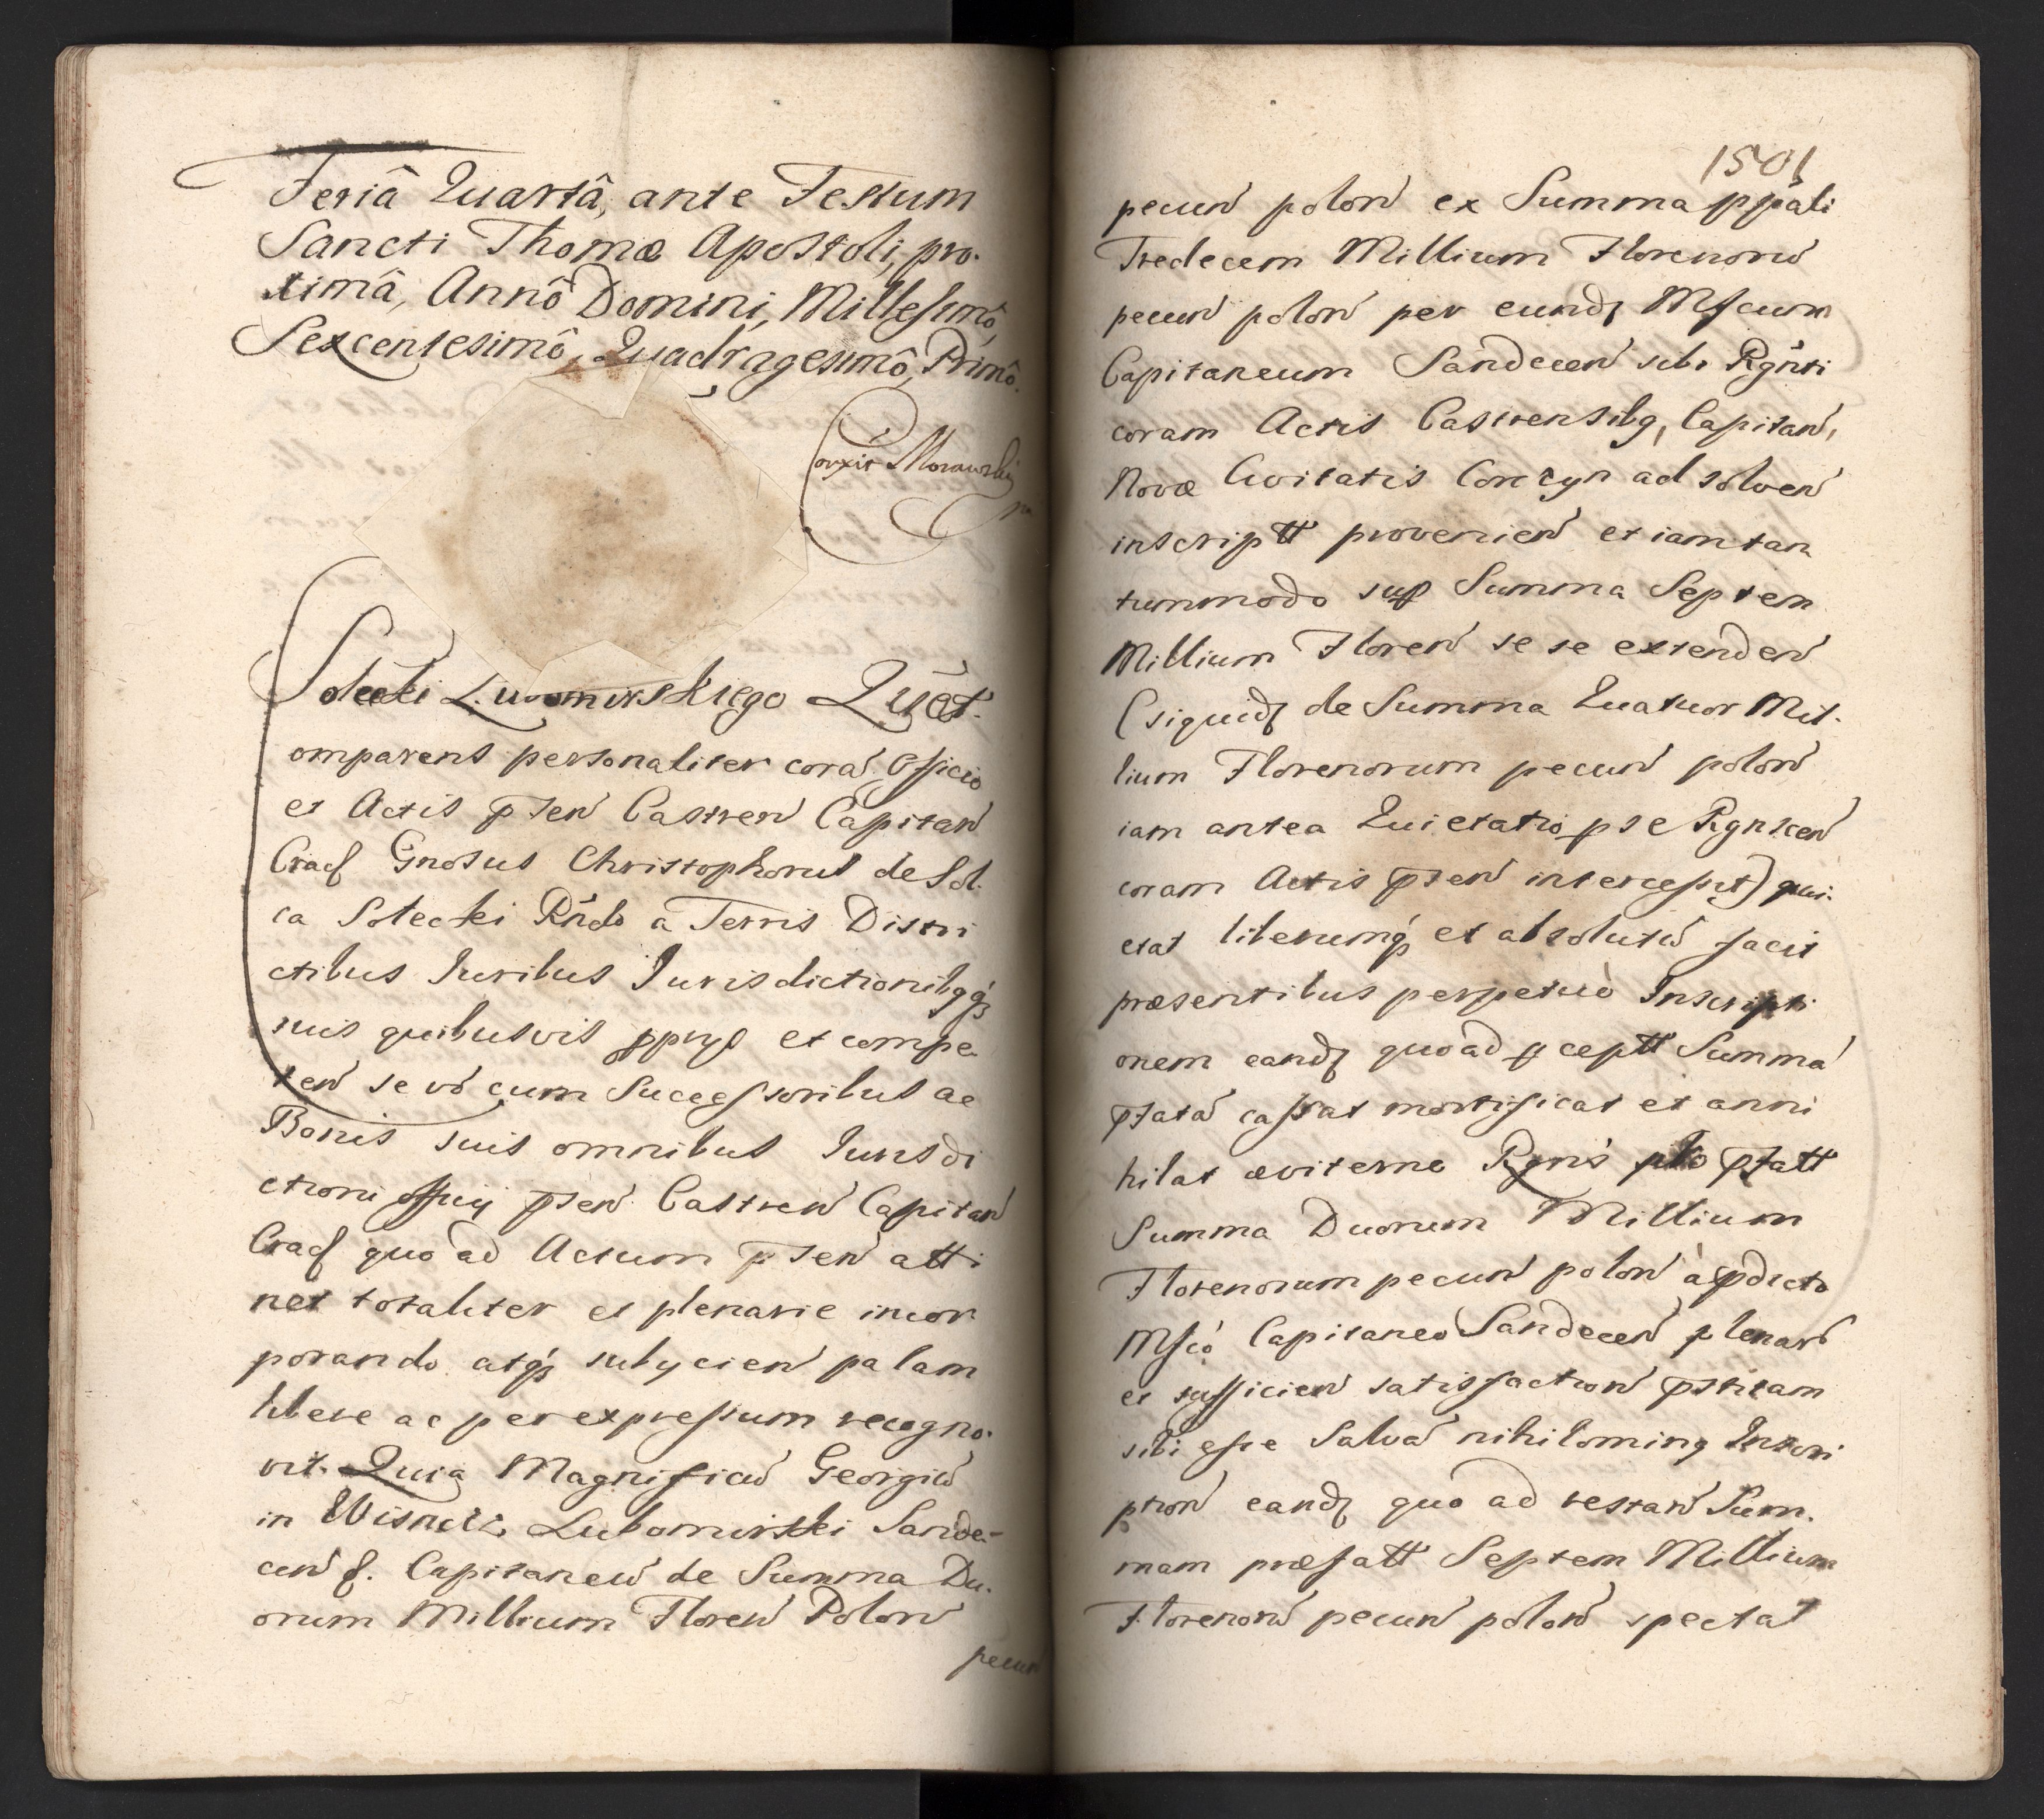 Feriâ Quartâ, ante Festum
Sancti Thomæ Apostoli, pro-
ximâ, Annô Domini, Millesimô,
Sexcentesimô, Quadragesimô, Primô.
Correxit Morawski
Solecki Lubomirskiego Quiet.
Comparens personaliter corã Officio
et Actis p̄sen Castren Capitan
Crac Gnosus Christophorus de Sol-
ca Solecki Rñdo a Terris Distri
ctibus Iuribus Iurisdictionibqq
suis quibusvis pprys et compe-
ten se vo cum Successoribus ac
Bonis suis omnibus Iurisdi
ctioni offici p̄sen Castren Capitan
Crac quo ad Actum p̄sen atti
net totaliter et plenarie incor
porando atq subycien palam
libere ac per expressum recogno-
vit. Quia Magnificũ Georgiũ
in Wisnicz Lubomirski Sande-
cen. Capitaneũ de Summa Du-
orum Millium Floren Polon
pecun
1501
pecun polon ex Summa ppali
Tredecem Millium Florenorũ
pecun polon per eund Mfcum
Capitaneum Sandecen sibi Rgnti
coram Actis Castrensibq, Capitan,
Novæ Civitatis Corczyn ad solven
inscriptt provenien et iam tan
tummodo sup Summa Septem
Millium Floren se se extenden
(siquid de Summa Quatuor Mil-
lium Florenorum pecun polon
iam antea Quietatio p se Rgnscen
coram Actis p̄sen intercessit) qui-
etat liberumq et absolutũ facit
præsentibus perpetuò Inscripti
onem eand quoad p ceptt Summã
p̄fatã cassat mortificat et anni
hilat æviterne Rgns p̄fatt
Summa Duorum Millium
Florenorum pecun polon à p̄dicto
Mfcó Capitaneo Sandecen plenarã
et sufficien satisfaction p̄stitam
sibi esse Salvã nihilominq Inscri
ption eand quo ad restan Sum-
mam præfatt Septem Millium
Florenorũ pecun polon spectat